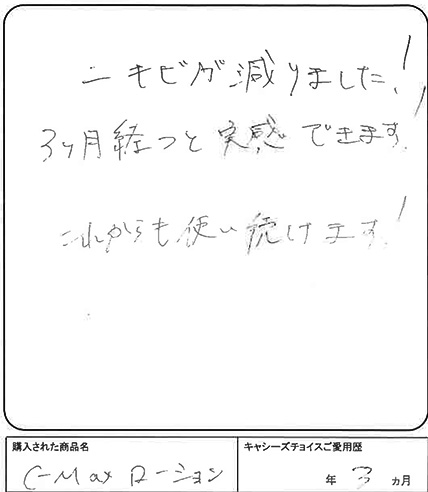 ニキビが減りました!
3ヶ月経つと実感できます!
これからも使い続けます!
購入された商品名
キャシーズチョイスご愛用歴
C-Max ローション
年 3 ヵ月